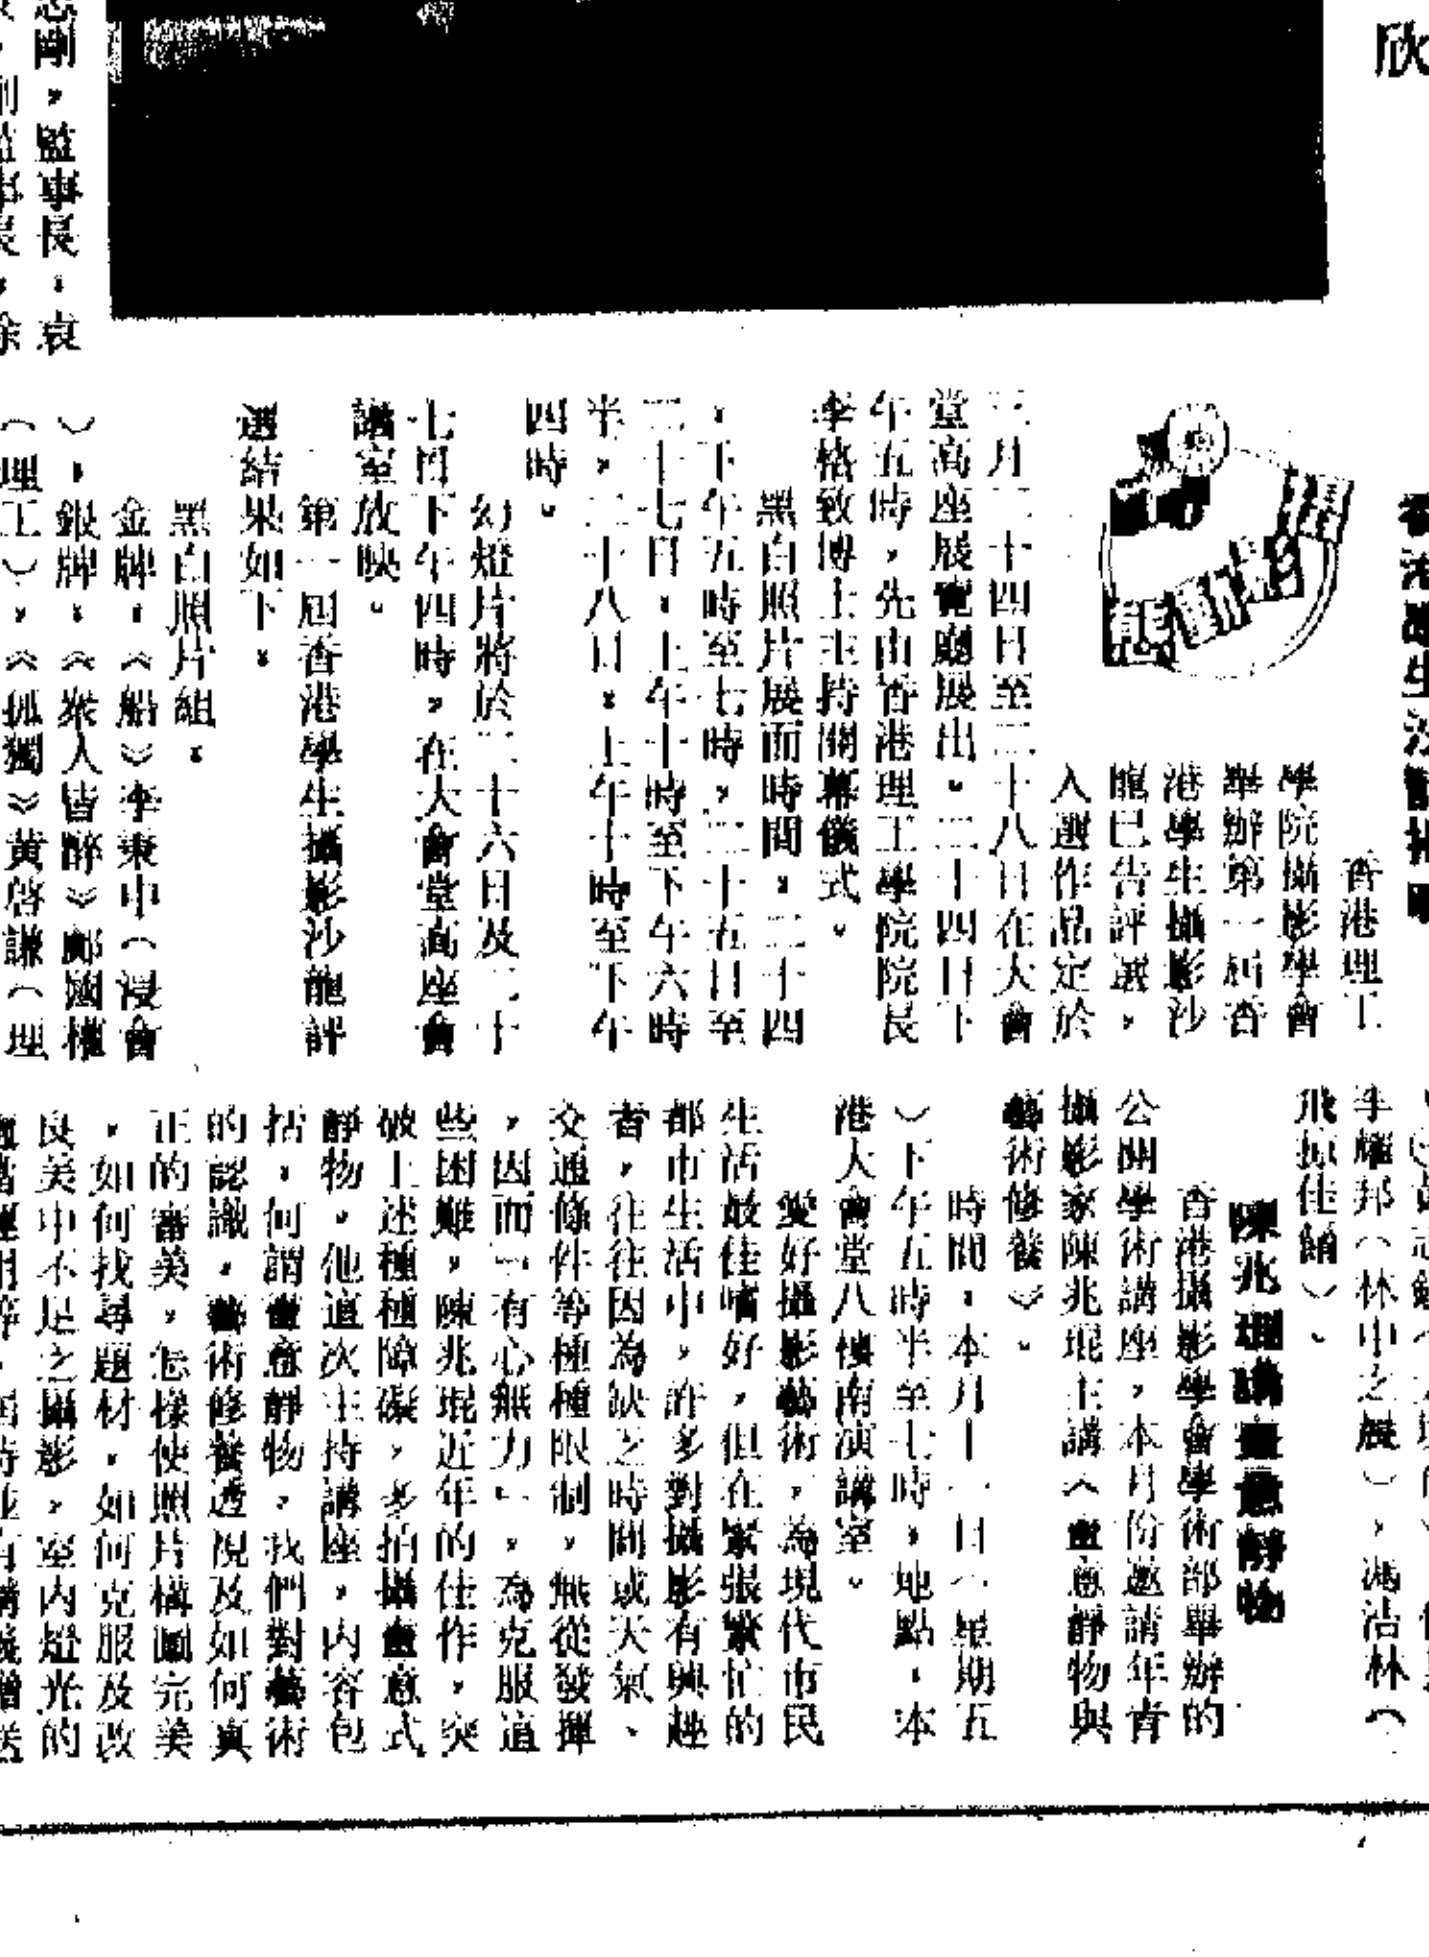 欣
忠剛，監事長：袁
副監事長，徐
香港理工
學院攝影學會
舉辦第一屆香
港學生攝影沙
龍已告評選，
入選作品定於
三月二十四日至二十八日在大會
堂高座展覽廳展出。二十四日下
午五時，先由香港理工學院院長
李格致博士主持開幕儀式。
黑白照片展而時間：二十四
，下午五時至七時，二十五日至
二十七日，上午十時至下午六時
半，二十八日，上午十時至下午
四時。
幻燈片將於二十六日及二十
七日下午四時，在大會堂高座會
議室放映。
第一屆香港學生攝影沙龍評
選結果如下：
黑白照片組：
金牌：《船》李秉中（浸會
），銀牌：《衆人皆醉》鄺國權
（理工），《孤獨》黃啓謙（理
李耀邦（林中之晨），馮沾林（
飛掠佳餚）。
陳兆琨講畫意靜物
香港攝影學會學術部舉辦的
公開學術講座，本月份邀請年青
攝影家陳兆琨主講《畫意靜物與
藝術修養》。
時間：本月十一日（星期五
）下午五時半至七時，地點：本
港大會堂八樓南演講室。
愛好攝影藝術，為現代市民
生活最佳嗜好，但在緊張繁忙的
都市生活中，許多對攝影有興趣
者，往往因為缺乏時間或天氣、
交通條件等種種限制，無從發揮
，因而「有心無力」，為克服這
些困難，陳兆琨近年的佳作，突
破上述種種障礙，多拍攝畫意式
靜物。他這次主持講座，內容包
括，何謂畫意靜物，我們對藝術
的認識，藝術修養透視及如何真
正的審美，怎樣使照片構圖完美
，如何找尋題材，如何克服及改
良美中不足之攝影，室內燈光的